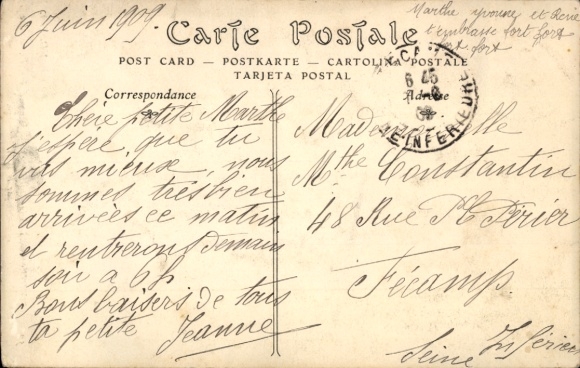 6 Juin 1909.
Marthe yvonne et René
t'embrasse fort fort
fort fort
Carte Postale
POST CARD — POSTKARTE — CARTOLINA POSTALE
TARJETA POSTAL
Correspondance
Adresse
6 45
NE INFERIEURE
Chère petite Marthe
J'espère que tu
vas mieux, nous
sommes très bien
arrivées ce matin
et rentrerons demain
soir a 6h
Bons baisers de tous
ta petite Jeanne
Mademoiselle
Mthe Constantin
48 Rue Ph Périer
Fécamp.
Seine Inférieure